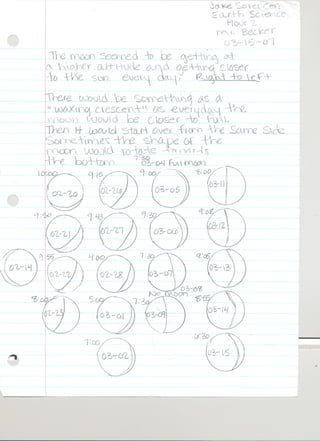 Earth Science
Hour 2
Mr. Becker
03-15-07
The moon seemed to be getting at
a higher altitude and getting closer
to the sun every day. Right to left
There would be something as a
"waxing crescent" as everyday the
moon would be closer to full.
Then it would start over from the same side
Sometimes the shape of the
moon would rotate towards
the bottom.
03-04 Full moon
10:00 9:15 9:00 8:00
02-20 02-26 03-05 03-11
9:30
02-21 02-27 03-06 03-12
02-14 9:55 4:00 7:30
02-22 02-28 03-07 03-13
No moon 03-08
8:00 5:00 7:30
02-23 03-01 03-09 03-14
7:00
03-02 03-15